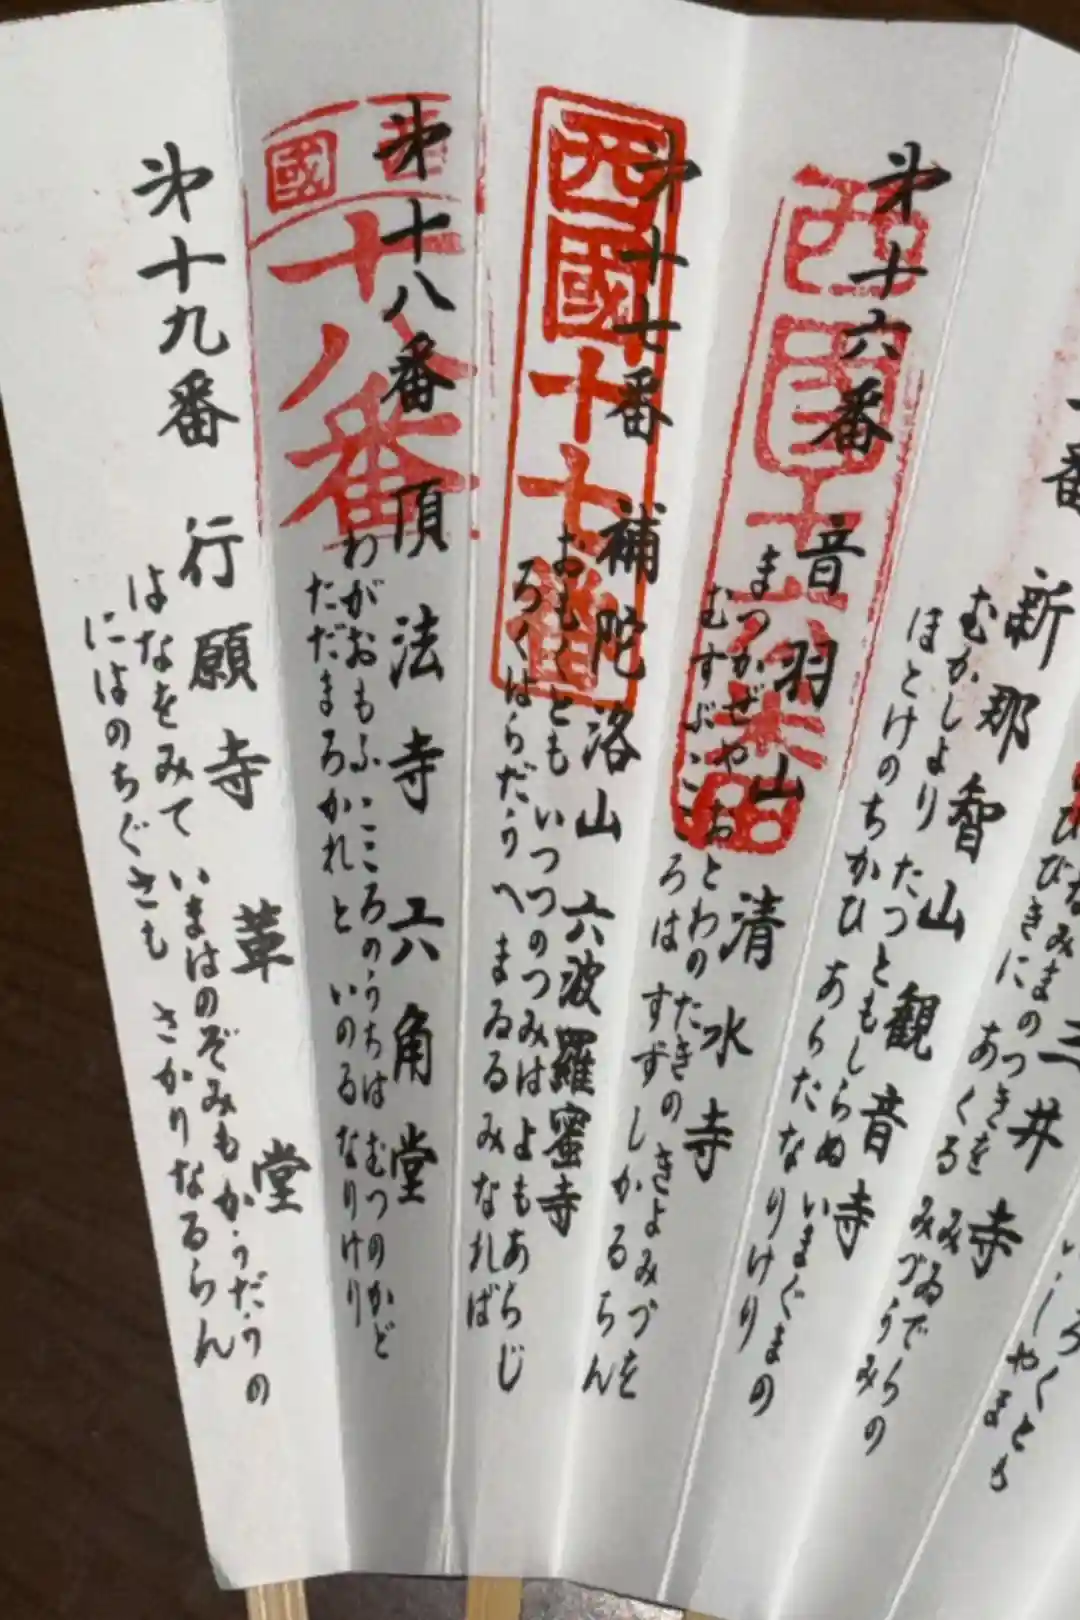 三井寺
ひびきに あくる みづうみ
番 新那智山 観音寺
むかしより たつともしらぬ いまぐまの
ほとけのちかひ あらたなりけり
第十六番 音羽山 清水寺
まつかぜや おとわのたきの きよみづを
むすぶこころは すずしかるらん
第十七番 補陀洛山 六波羅蜜寺
おもくとも いつつのつみは よもあらじ
ろくはらだうへ まゐるみなれば
第十八番 頂法寺 六角堂
わがおもふ こころのうちは むつのかど
ただまろかれと いのるなりけり
第十九番 行願寺 革堂
はなをみて いまはのぞみも かうだうの
にはのちぐさも さかりなるらん
西國十七番
國
十八番